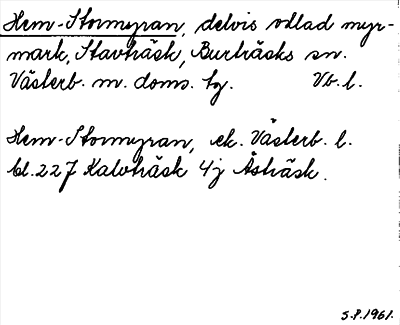 Hem-Stormyran, delvis odlad myr-
mark, Stavträsk, Burträsks sn.
Västerb. m. doms. tg. Vb. l.
Hem-Stormyran, ek. Västerb. l.
bl. 227 Kalvträsk 4j Åsträsk.
S.P. 1961.